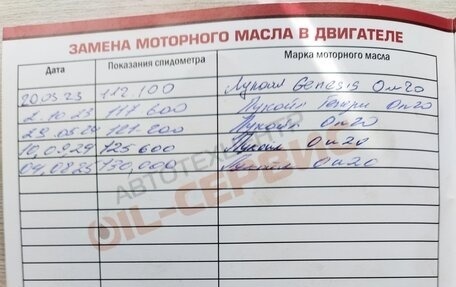 ЗАМЕНА МОТОРНОГО МАСЛА В ДВИГАТЕЛЕ
Дата Показания спидометра Марка моторного масла
20.03.23 112.100 Лукойл Genesis 0w20
2.10.23 117.600 Лукойл 0w20
Лукойл 0w20
10.09.24 125600 Лукойл 0w20
04.08.25 130,000 Лукойл 0w20
АВТОТЕХЦЕНТР
OIL-СЕРВИС